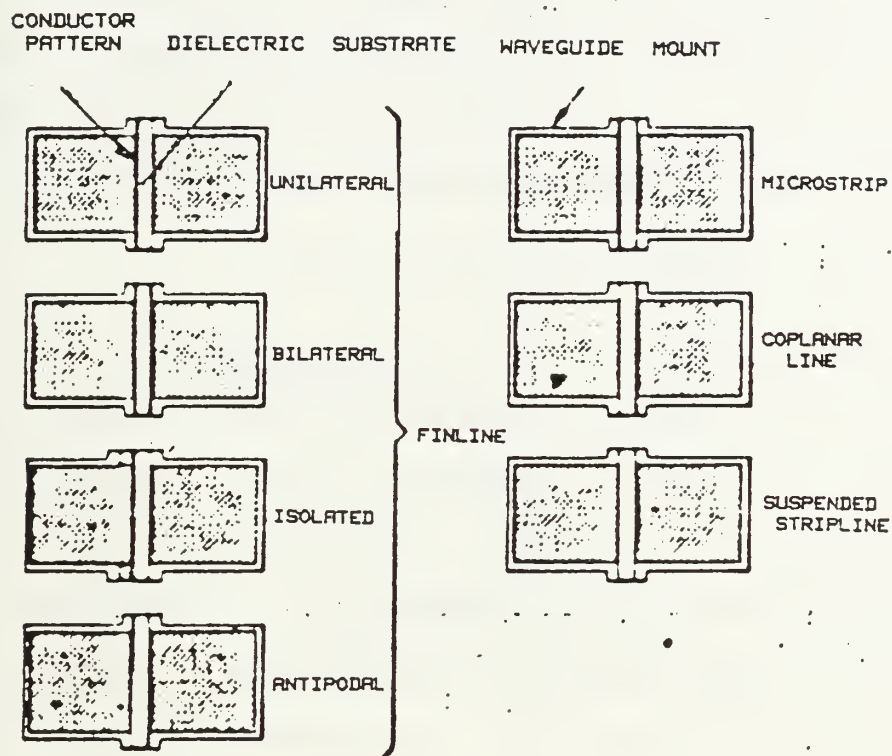 CONDUCTOR
PATTERN
DIELECTRIC SUBSTRATE
WAVEGUIDE MOUNT
UNILATERAL
BILATERAL
ISOLATED
ANTIPODAL
FINLINE
MICROSTRIP
COPLANAR
LINE
SUSPENDED
STRIPLINE